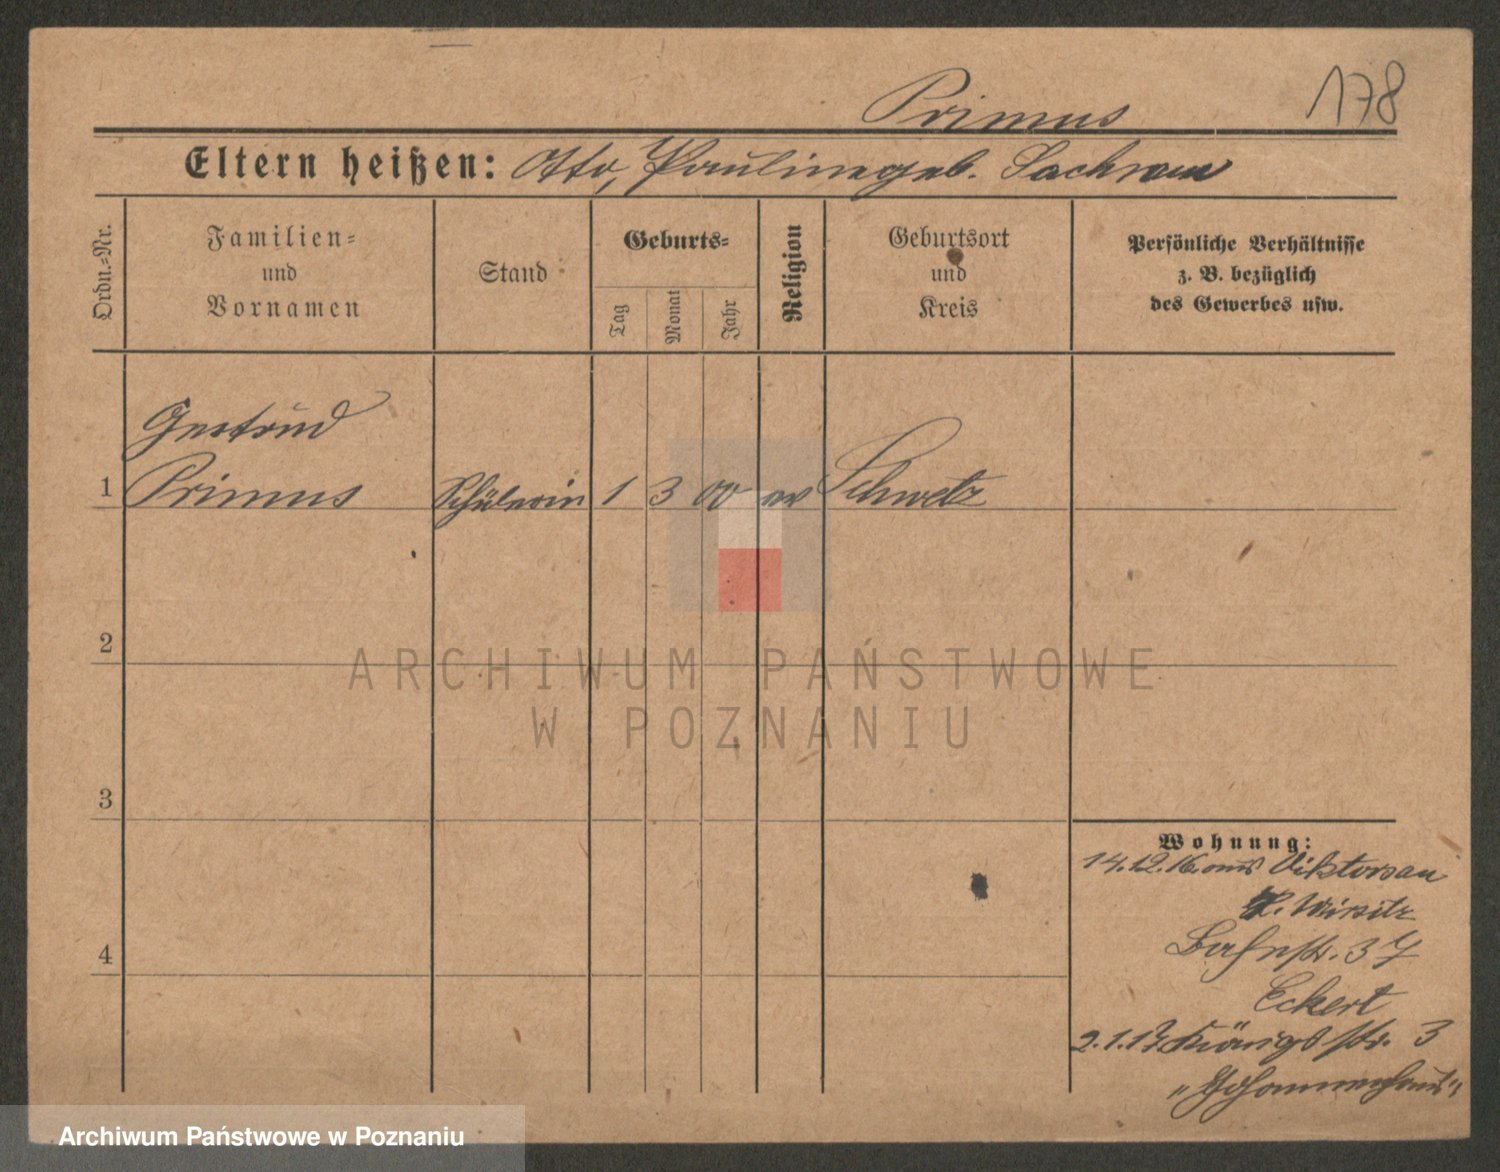 Primus
178
Eltern heißen: Otto, Pauline geb. Sachram
Ordn.-Nr.
Familien-
und
Vornamen
Stand
Geburts-
Tag
Monat
Jahr
Religion
Geburtsort
und
Kreis
Persönliche Verhältnisse
z. B. bezüglich
des Gewerbes usw.
Gertrud
1 Primus Schülerin 1 3 00 ev Schwetz
2
ARCHIWUM PAŃSTWOWE
W POZNANIU
3
Wohnung:
14.12.16. aus Viktorsau
K. Wirsitz
4
Bahnstr. 37
Eckert
2.1.17. Königstr. 3
„Johannenhaus"
Archiwum Państwowe w Poznaniu